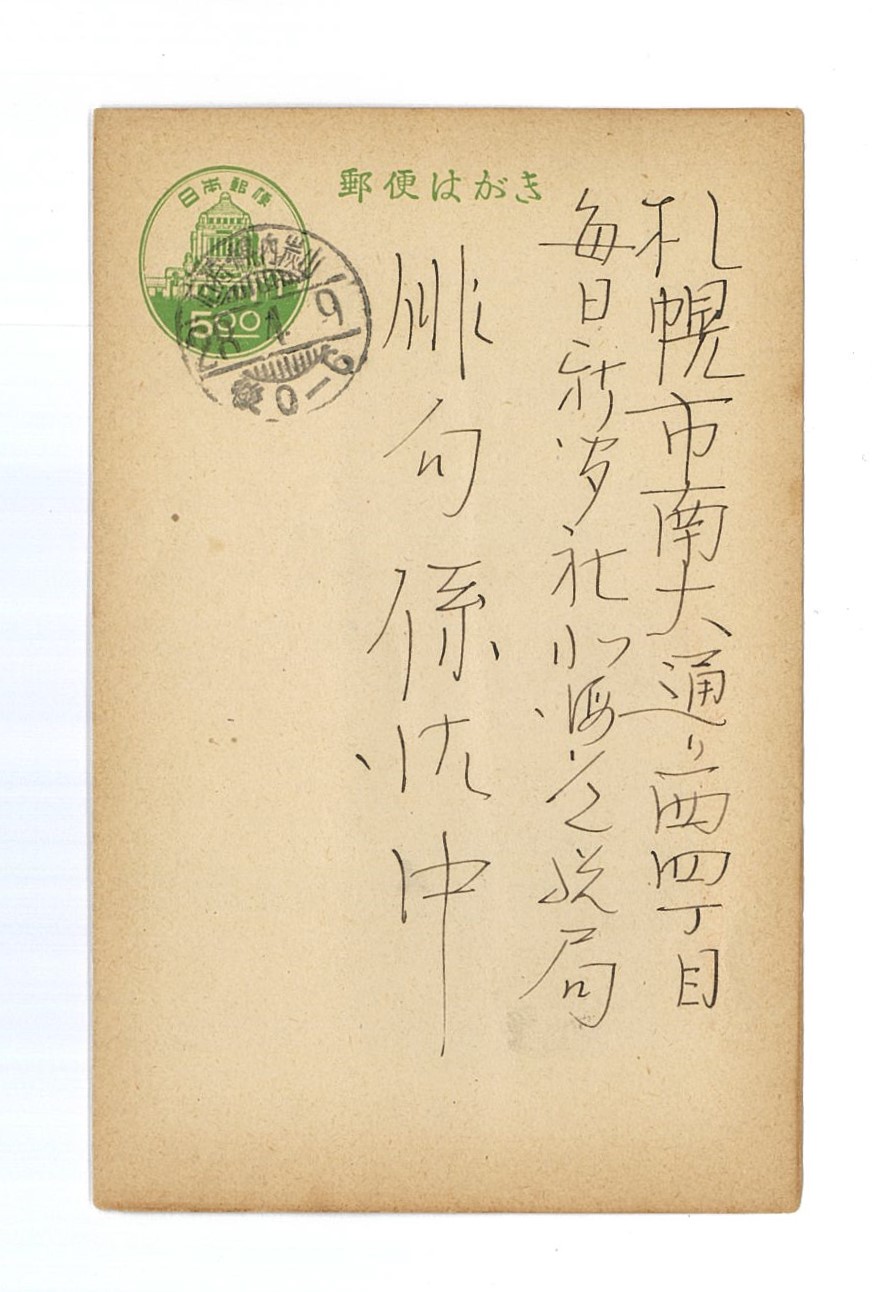 郵便はがき
日本郵便
500
28.1.9
后0-6
札幌市南大通り西四丁目
毎日新聞社北海道総局
俳句係御中